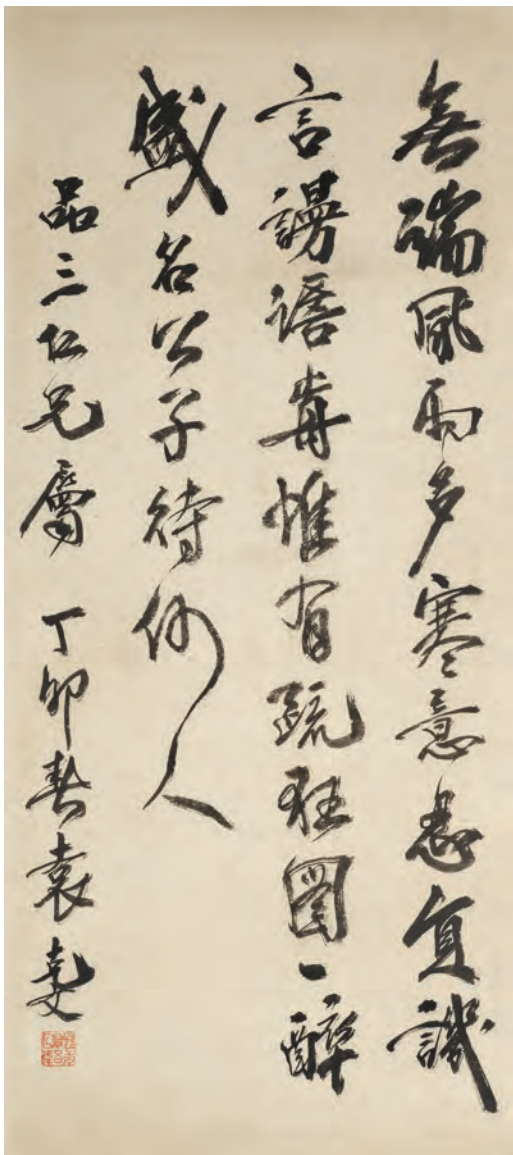 無端風雨多寒意負譏
言謾語旾惟有疏狂圖一醉
盛名公子待何人
品三仁兄屬 丁卯春袁克文